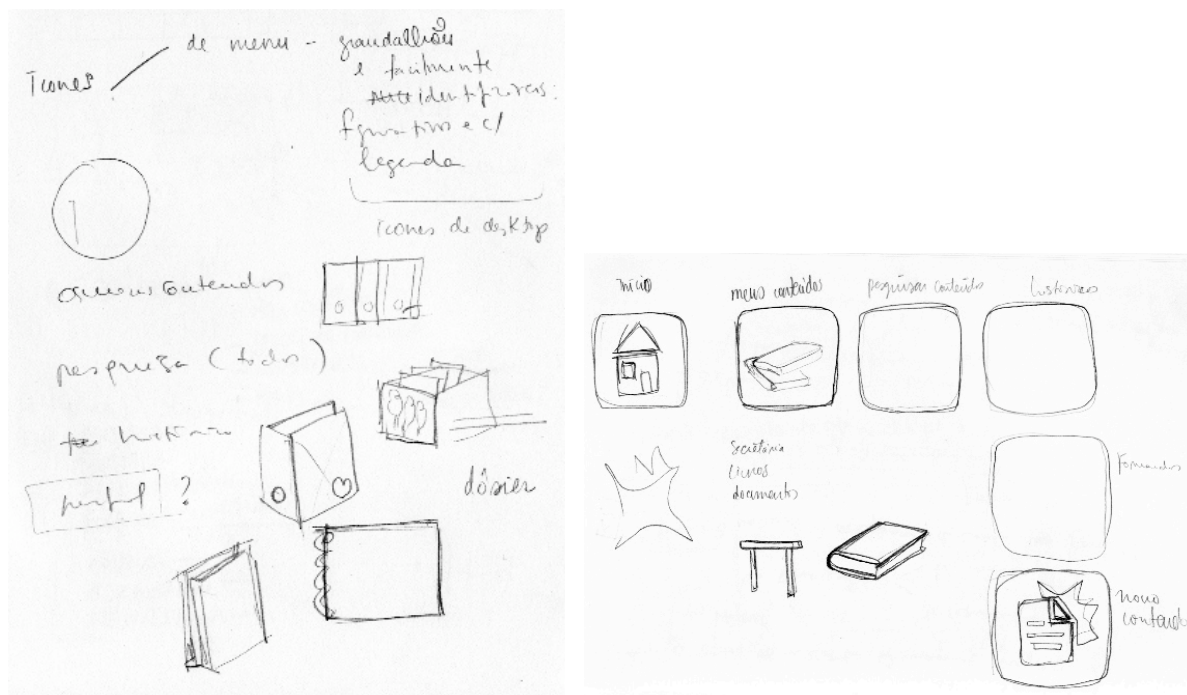 Ícones
de menu - grandalhões
e facilmente
identificáveis:
figurativos e c/
legenda
ícones de desktop
conteudos
pesquisa (todos)
histórico
perfil ?
dôssier
início
meus conteúdos
pesquisar conteúdos
histórico
Secretária
livros
documentos
Formandos
novo
conteudo